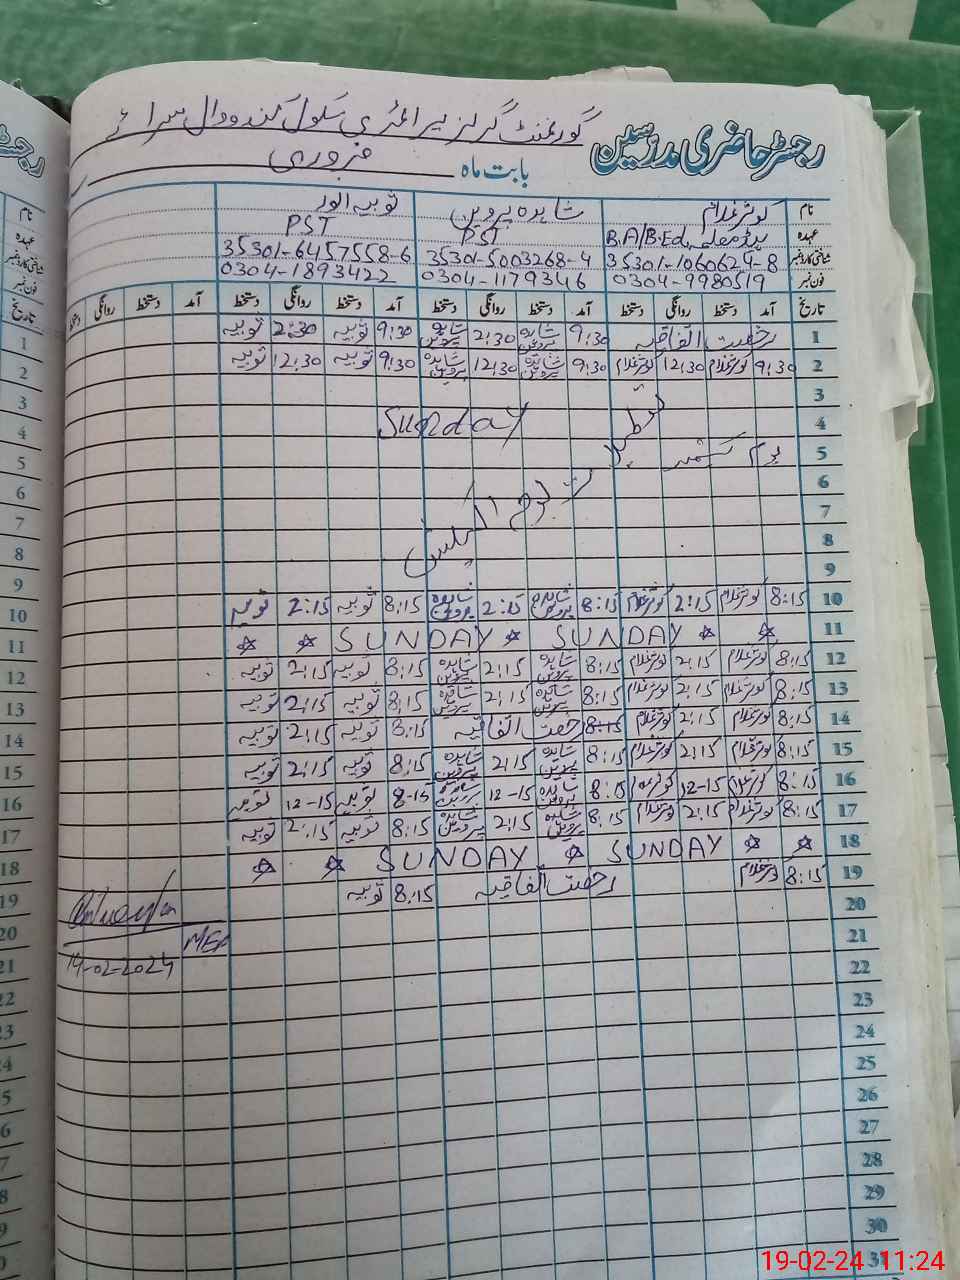 رجسٹر حاضری مدرسین گورنمنٹ گرلز پرائمری سکول گندووال سرائے
بابت ماہ فروری
نام کوثر غلام شاہدہ پروین ثوبیہ انور
عہدہ B.A/B.Ed ہیڈ معلمہ PST PST
شناختی کارڈ نمبر 35301-1060624-8 35301-5003268-4 35301-6457558-6
فون نمبر 0304-9980519 0304-1179346 0304-1893422
تاریخ آمد دستخط روانگی دستخط آمد دستخط روانگی دستخط آمد دستخط روانگی دستخط آمد دستخط روانگی دستخط
1 رخصت اتفاقیہ 9:30 شاہدہ پروین 2:30 شاہدہ پروین 9:30 ثوبیہ 2:30 ثوبیہ
2 9:30 کوثر غلام 12:30 کوثر غلام 9:30 شاہدہ پروین 12:30 شاہدہ پروین 9:30 ثوبیہ 12:30 ثوبیہ
3
4 Sunday
5 یوم کشمیر
6
7 تعطیلات بوجہ الیکشن
8
9
10 8:15 کوثر غلام 2:15 کوثر غلام 8:15 شاہدہ پروین 2:15 شاہدہ پروین 8:15 ثوبیہ 2:15 ثوبیہ
11 SUNDAY SUNDAY
12 8:15 کوثر غلام 2:15 کوثر غلام 8:15 شاہدہ پروین 2:15 شاہدہ پروین 8:15 ثوبیہ 2:15 ثوبیہ
13 8:15 کوثر غلام 2:15 کوثر غلام 8:15 شاہدہ پروین 2:15 شاہدہ پروین 8:15 ثوبیہ 2:15 ثوبیہ
14 8:15 کوثر غلام 2:15 کوثر غلام 8:15 رخصت اتفاقیہ 8:15 ثوبیہ 2:15 ثوبیہ
15 8:15 کوثر غلام 2:15 کوثر غلام 8:15 شاہدہ پروین 2:15 شاہدہ پروین 8:15 ثوبیہ 2:15 ثوبیہ
16 8:15 کوثر غلام 12-15 کوثر غلام 8:15 شاہدہ پروین 12-15 شاہدہ پروین 8-15 ثوبیہ 12-15 ثوبیہ
17 8:15 کوثر غلام 2:15 کوثر غلام 8:15 شاہدہ پروین 2:15 شاہدہ پروین 8:15 ثوبیہ 2:15 ثوبیہ
18 SUNDAY SUNDAY
19 8:15 کوثر غلام رخصت اتفاقیہ 8:15 ثوبیہ
20
21 MEA
22 14-02-2024
23
24
25
26
27
28
29
30
31
19-02-24 11:24
رجسٹر
نام
عہدہ
شناختی کارڈ نمبر
فون نمبر
تاریخ
1
2
3
4
5
6
7
8
9
10
11
12
13
14
15
16
17
18
19
20
21
22
23